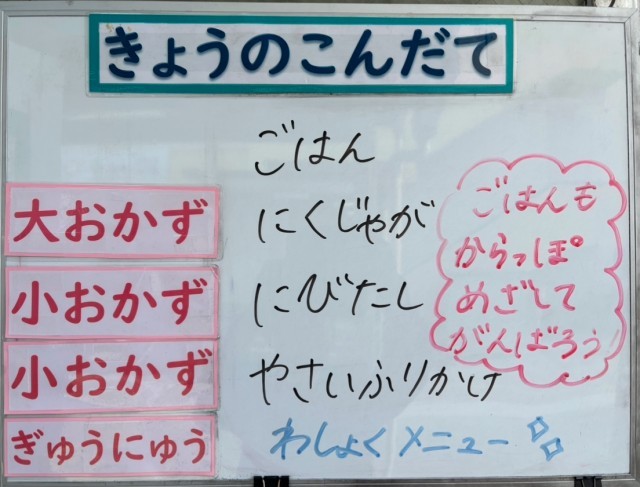 きょうのこんだて
ごはん
大おかず にくじゃが
小おかず にびたし
小おかず やさいふりかけ
ぎゅうにゅう わしょくメニュー
ごはんも
からっぽ
めざして
がんばろう